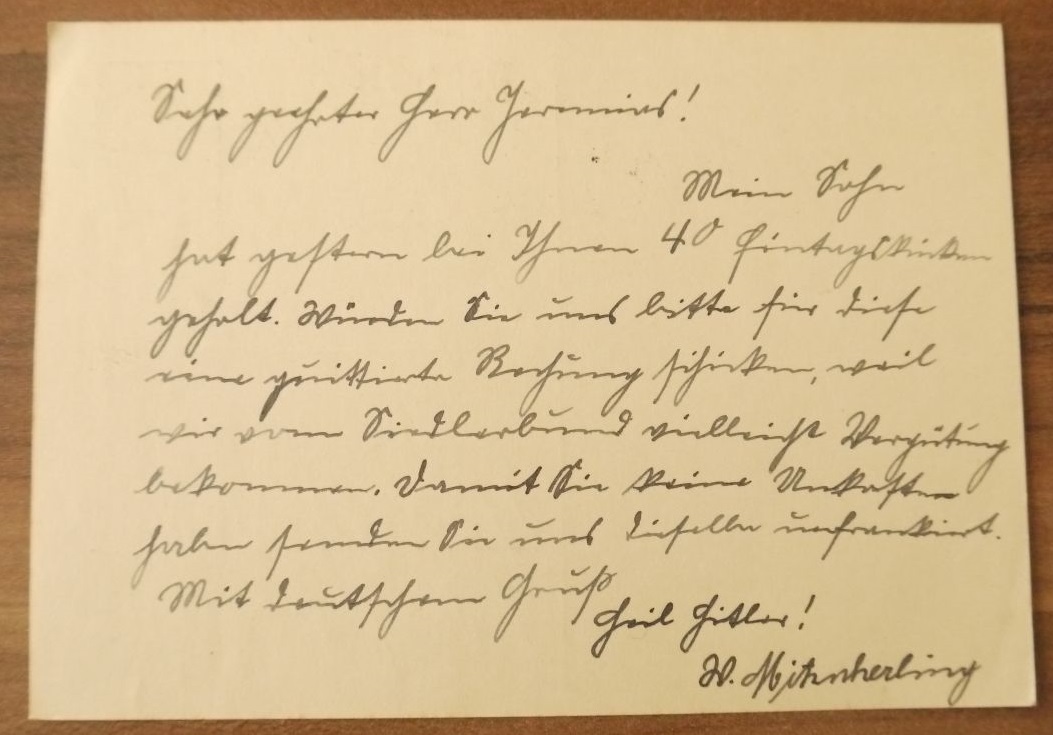 Sehr geehrter Herr Jeremias!
Mein Sohn
hat gestern bei Ihnen 40 Eintagskücken
geholt. Würden Sie uns bitte für diese
eine quittierte Rechung schicken, weil
wir vom Siedlerbund vielleicht Vergütung
bekommen. Damit Sie keine Unkosten
haben senden Sie uns dieselbe unfrankiert.
Mit deutschem Gruß
Heil Hitler!
W.